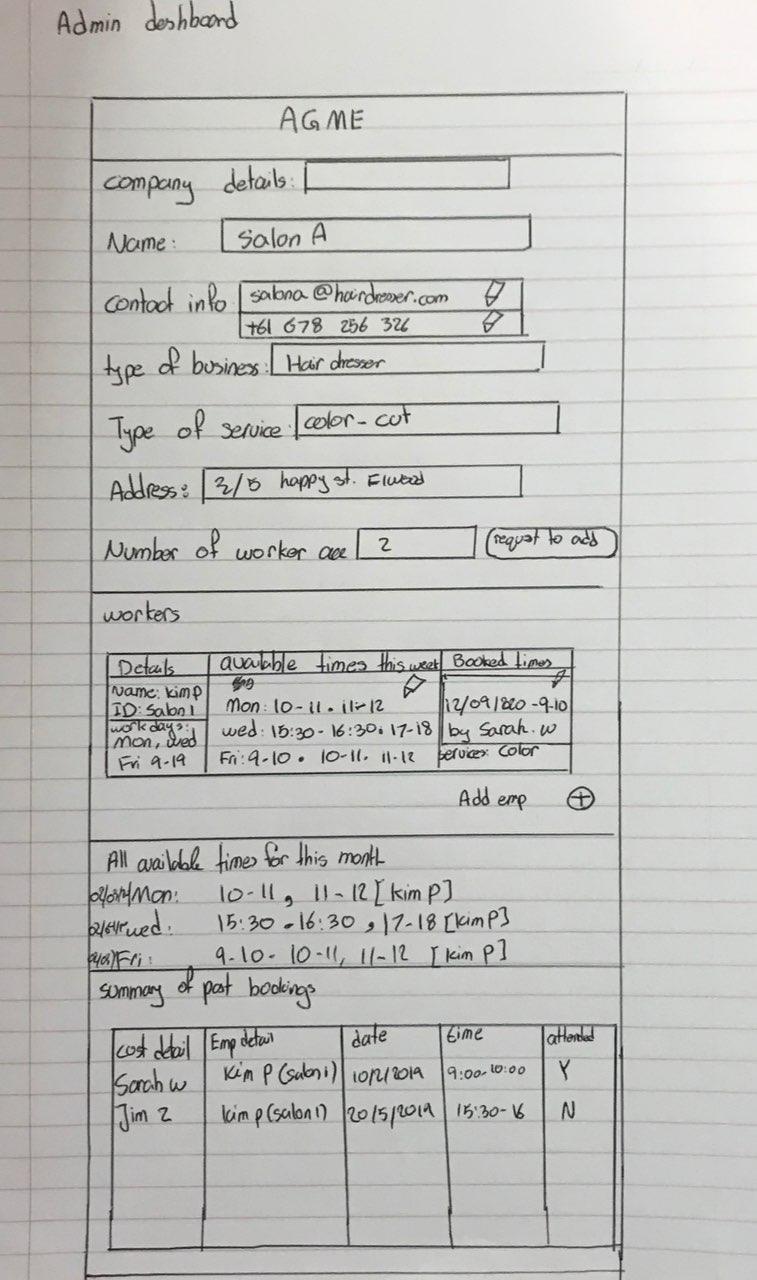 Admin deshboard
AGME
company details:
Name: Salon A
contact info salona@hairdresser.com
+61 678 256 326
type of business: Hair dresser
Type of service: color-cut
Address: 3/5 happy st. Elwood
Number of worker are 2 (request to add)
workers
Details available times this week Booked times
Name: kim p
ID: Salon 1 Mon: 10-11. 11-12 12/09/ -9-10
work days:
Mon, wed wed: 15:30-16:30. 17-18 by Sarah. w
Fri 9-19 Fri: 9-10. 10-11. 11-12 services: color
Add emp +
All available times for this month
Mon: 10-11, 11-12 [kim P]
wed: 15:30-16:30, 17-18 [kim P]
Fri: 9-10- 10-11, 11-12 [kim P]
summary of past bookings
cust detail Emp detail date time attended
Sarah w kim P (salon 1) 10/2/2019 9:00-10:00 Y
Jim Z kim p (salon 1) 20/5/2019 15:30-16 N